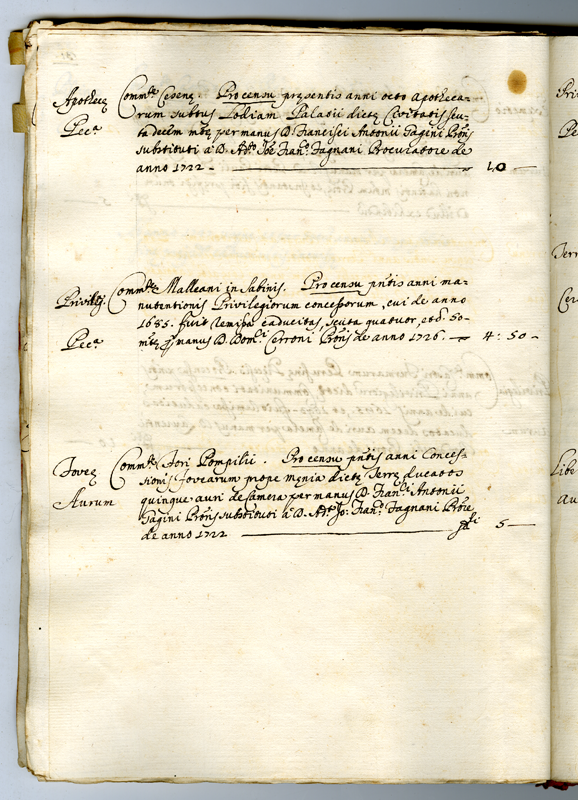 Apothecę
Pecᵃ
Commᵗᵉ Cesenę. Pro censu pręsentis anni octo Apotheca-
rum subtus Lodiam Palatii dictę Civitatis scu-
ta decem mtę per manus D. Francisci Antonii Tagini
substituti à D. Joe Franᶜᵒ Fagnani Procuratore de
anno 1722 — 10 —
Privileg.
Pecᵃ
Commᵗᵉ Malleani in Sabinis. Pro censu pntis anni ma-
nutentionis Privilegiorum concessorum, cui de anno
1685. fuit remissa caducitas, scuta quatuor, et 50-
mtę manus D. Domᶜⁱ Cerroni de anno 1726. — 4: 50 -
Foveę
Aurum
Commᵗᵉ Fori Pompilii. Pro censu pntis anni Conces-
sionis Fovearum prope męnia dictę Terrę ducatos
quinque auri de Camera per manus D. Franᶜⁱ Antonii
Tagini substituti à D. Jo: Franᶜᵒ Fagnani
de anno 1722 — 5 —